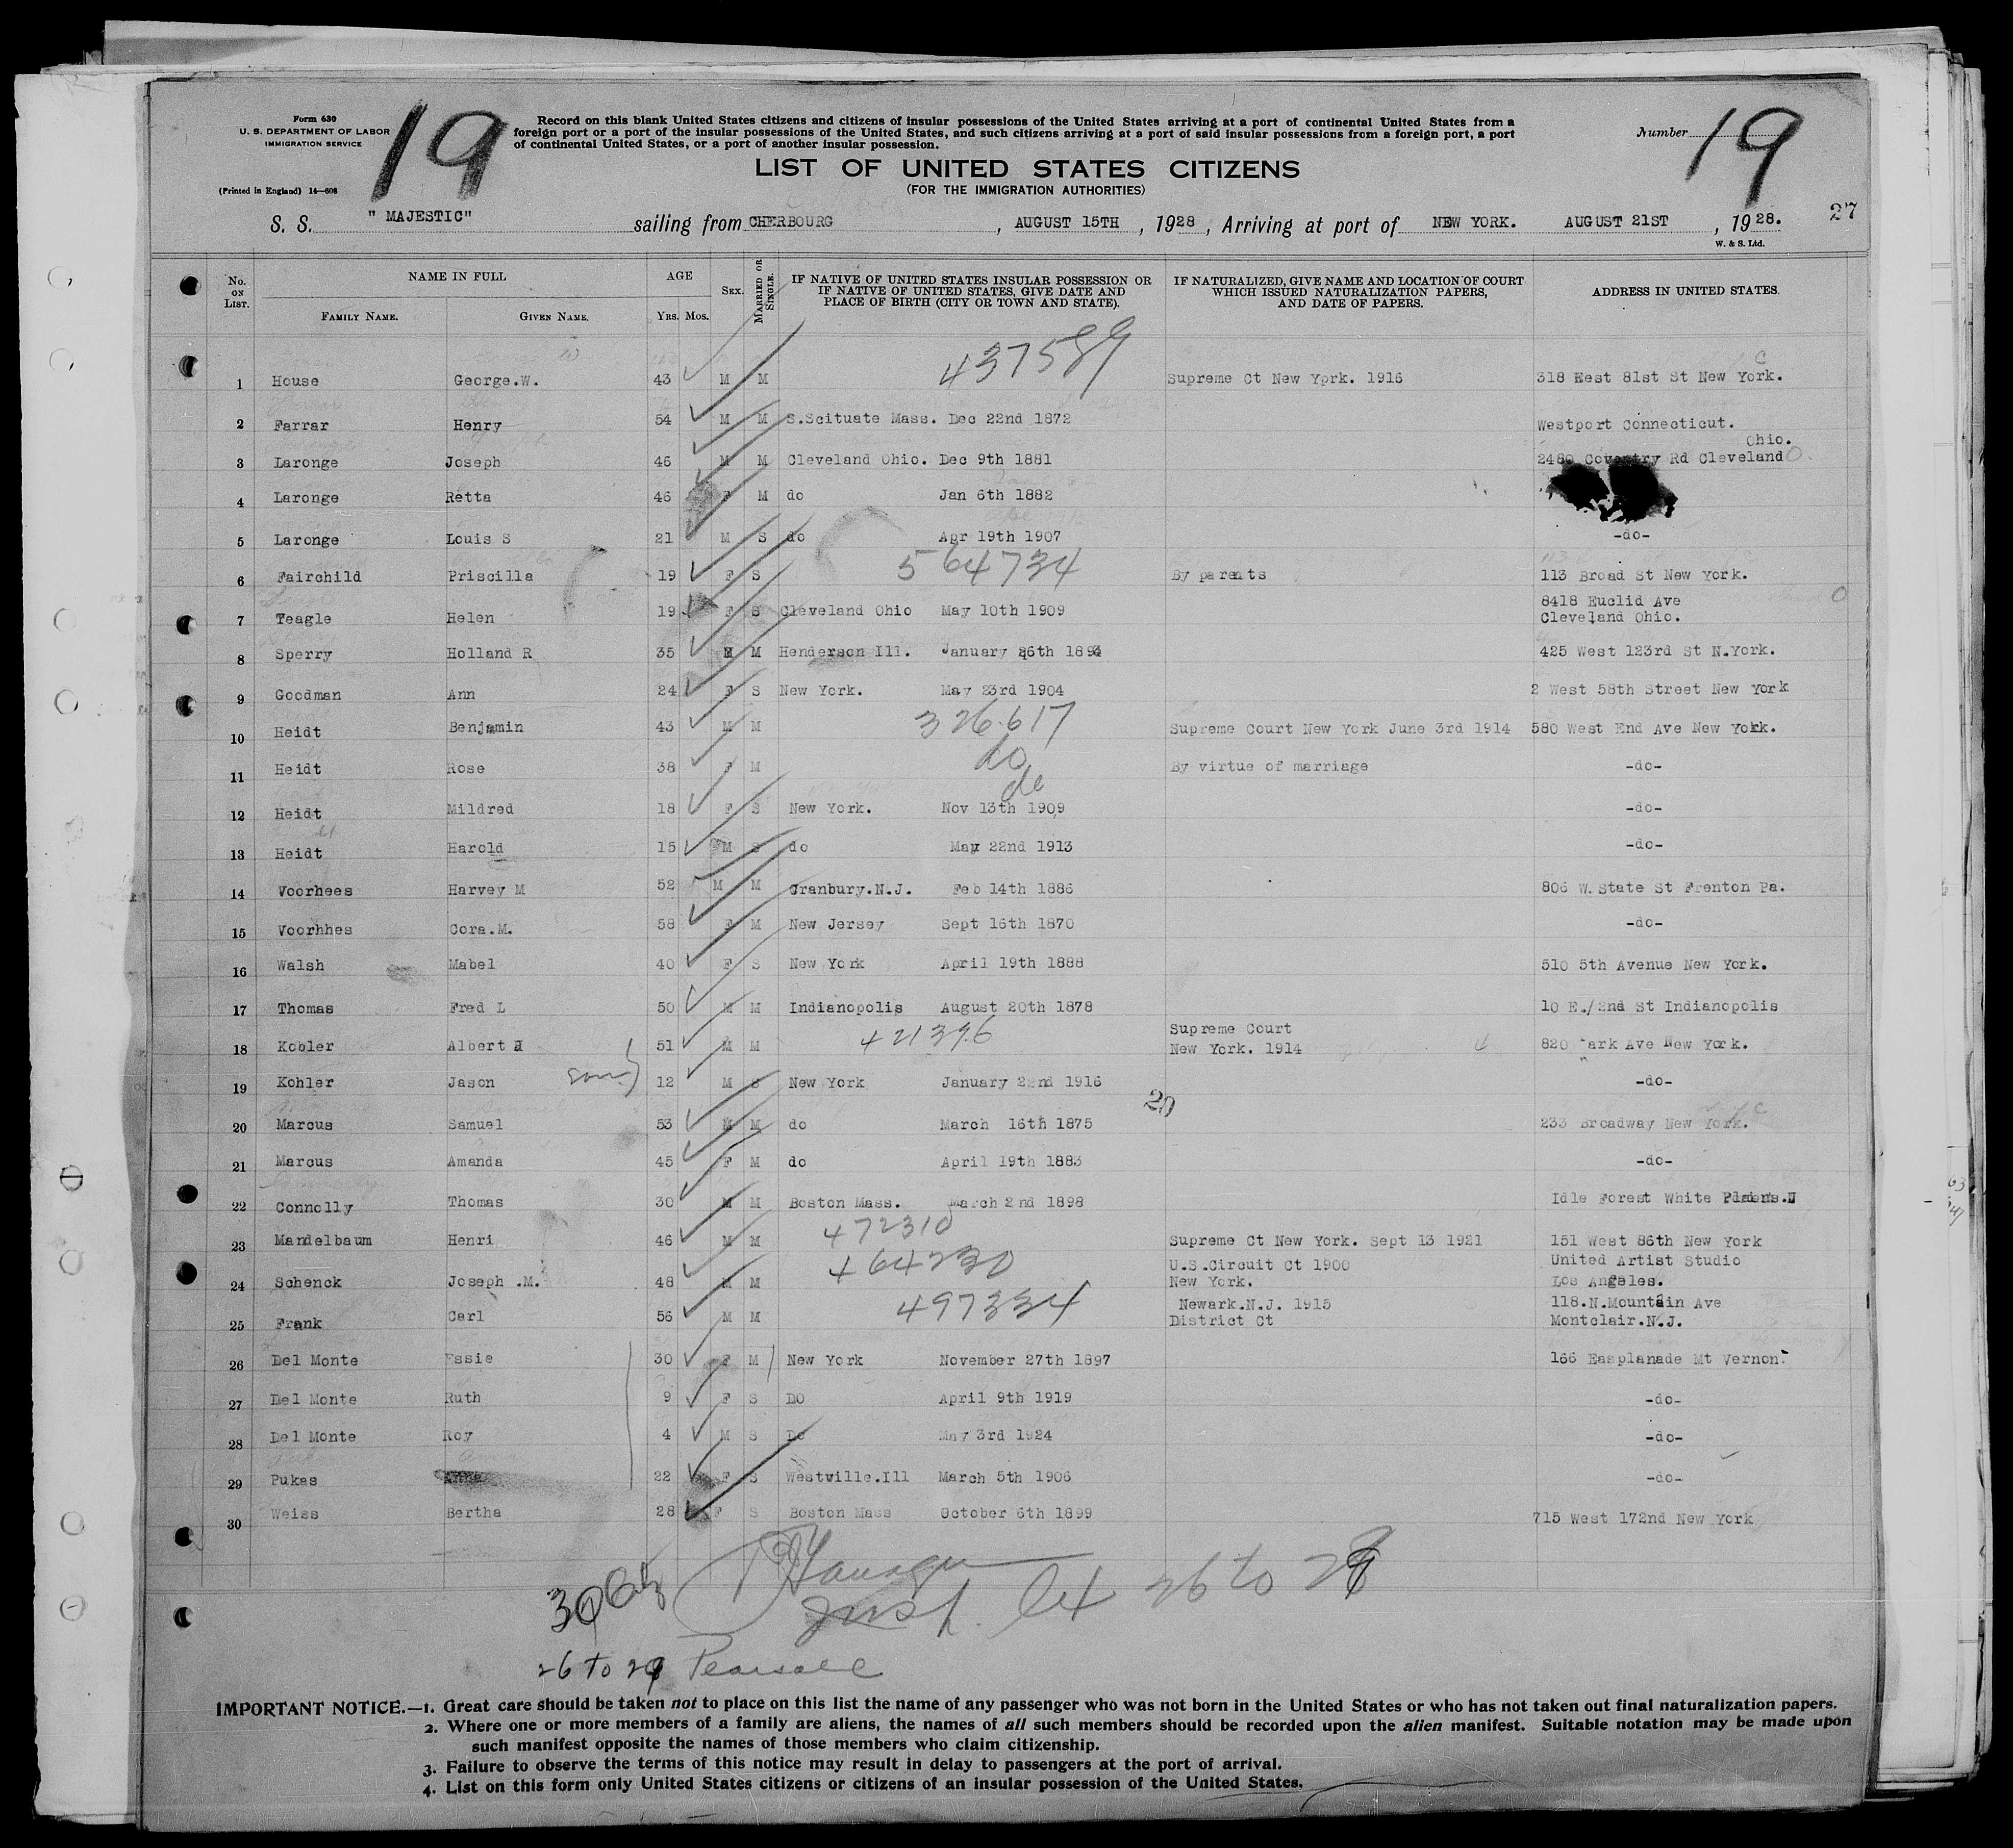 Form 630
U. S. DEPARTMENT OF LABOR
IMMIGRATION SERVICE
(Printed in England) 14—608
19
Record on this blank United States citizens and citizens of insular possessions of the United States arriving at a port of continental United States from a
foreign port or a port of the insular possessions of the United States, and such citizens arriving at a port of said insular possessions from a foreign port, a port
of continental United States, or a port of another insular possession.
Number 19
LIST OF UNITED STATES CITIZENS
(FOR THE IMMIGRATION AUTHORITIES)
27
S. S. " MAJESTIC" sailing from CHERBOURG , AUGUST 15TH , 1928 , Arriving at port of NEW YORK. AUGUST 21ST , 1928.
W. & S. Ltd.
No. ON LIST. NAME IN FULL AGE SEX. MARRIED OR SINGLE. IF NATIVE OF UNITED STATES INSULAR POSSESSION OR IF NATIVE OF UNITED STATES, GIVE DATE AND PLACE OF BIRTH (CITY OR TOWN AND STATE). IF NATURALIZED, GIVE NAME AND LOCATION OF COURT WHICH ISSUED NATURALIZATION PAPERS, AND DATE OF PAPERS. ADDRESS IN UNITED STATES.
FAMILY NAME. GIVEN NAME. YRS. MOS.
1 House George.W. 43 M M 437589 Supreme Ct New York. 1916 318 East 81st St New York.
2 Farrar Henry 54 M M S.Scituate Mass. Dec 22nd 1872 Westport Connecticut.
Ohio.
3 Laronge Joseph 46 M M Cleveland Ohio. Dec 9th 1881 2480 Coventry Rd Cleveland O.
4 Laronge Retta 46 F M do Jan 6th 1882
5 Laronge Louis S 21 M S do Apr 19th 1907 -do-
6 Fairchild Priscilla 19 F S 564734 By parents 113 Broad St New York.
7 Teagle Helen 19 F S Cleveland Ohio May 10th 1909 8418 Euclid Ave
Cleveland Ohio.
8 Sperry Holland R 35 M M Henderson Ill. January 26th 1893 425 West 123rd St N.York.
9 Goodman Ann 24 F S New York. May 23rd 1904 2 West 58th Street New York
10 Heidt Benjamin 43 M M 326.617 Supreme Court New York June 3rd 1914 580 West End Ave New York.
11 Heidt Rose 38 F M do By virtue of marriage -do-
do
12 Heidt Mildred 18 F S New York. Nov 13th 1909 -do-
13 Heidt Harold 15 M S do May 22nd 1913 -do-
14 Voorhees Harvey M 52 M M Cranbury.N.J. Feb 14th 1886 806 W.State St Frenton Pa.
15 Voorhhes Cora.M. 58 F M New Jersey Sept 16th 1870 -do-
16 Walsh Mabel 40 F S New York April 19th 1888 510 5th Avenue New York.
17 Thomas Fred L 50 M M Indianopolis August 20th 1878 10 E./2nd St Indianopolis
Supreme Court
18 Kobler Albert 51 M M 421396 New York. 1914 820 Park Ave New York.
19 Kohler Jason son 12 M S New York January 22nd 1916 -do-
20
20 Marcus Samuel 53 M M do March 16th 1875 233 Broadway New York.
21 Marcus Amanda 45 F M do April 19th 1883 -do-
22 Connolly Thomas 30 M M Boston Mass. March 2nd 1898 Idle Forest White
23 Mandelbaum Henri 46 M M 472310 Supreme Ct New York. Sept 13 1921 151 West 86th New York
U.S.Circuit Ct 1900 United Artist Studio
24 Schenck Joseph .M. 48 M M 464230 New York. Los Angeles.
Newark.N.J. 1915 118.N.Mountain Ave
25 Frank Carl 56 M M 497334 District Ct Montclair.N.J.
26 Del Monte Essie 30 F M New York November 27th 1897 166 Easplanade Mt Vernon.
27 Del Monte Ruth 9 F S DO April 9th 1919 -do-
28 Del Monte Roy 4 M S Do May 3rd 1924 -do-
29 Pukas 22 F S Westville.Ill March 5th 1906 -do-
30 Weiss Bertha 28 F S Boston Mass October 6th 1899 715 West 172nd New York
Insp. 26 to 29
26 to 29 Pearsall
IMPORTANT NOTICE.—1. Great care should be taken not to place on this list the name of any passenger who was not born in the United States or who has not taken out final naturalization papers.
2. Where one or more members of a family are aliens, the names of all such members should be recorded upon the alien manifest. Suitable notation may be made upon
such manifest opposite the names of those members who claim citizenship.
3. Failure to observe the terms of this notice may result in delay to passengers at the port of arrival.
4. List on this form only United States citizens or citizens of an insular possession of the United States.